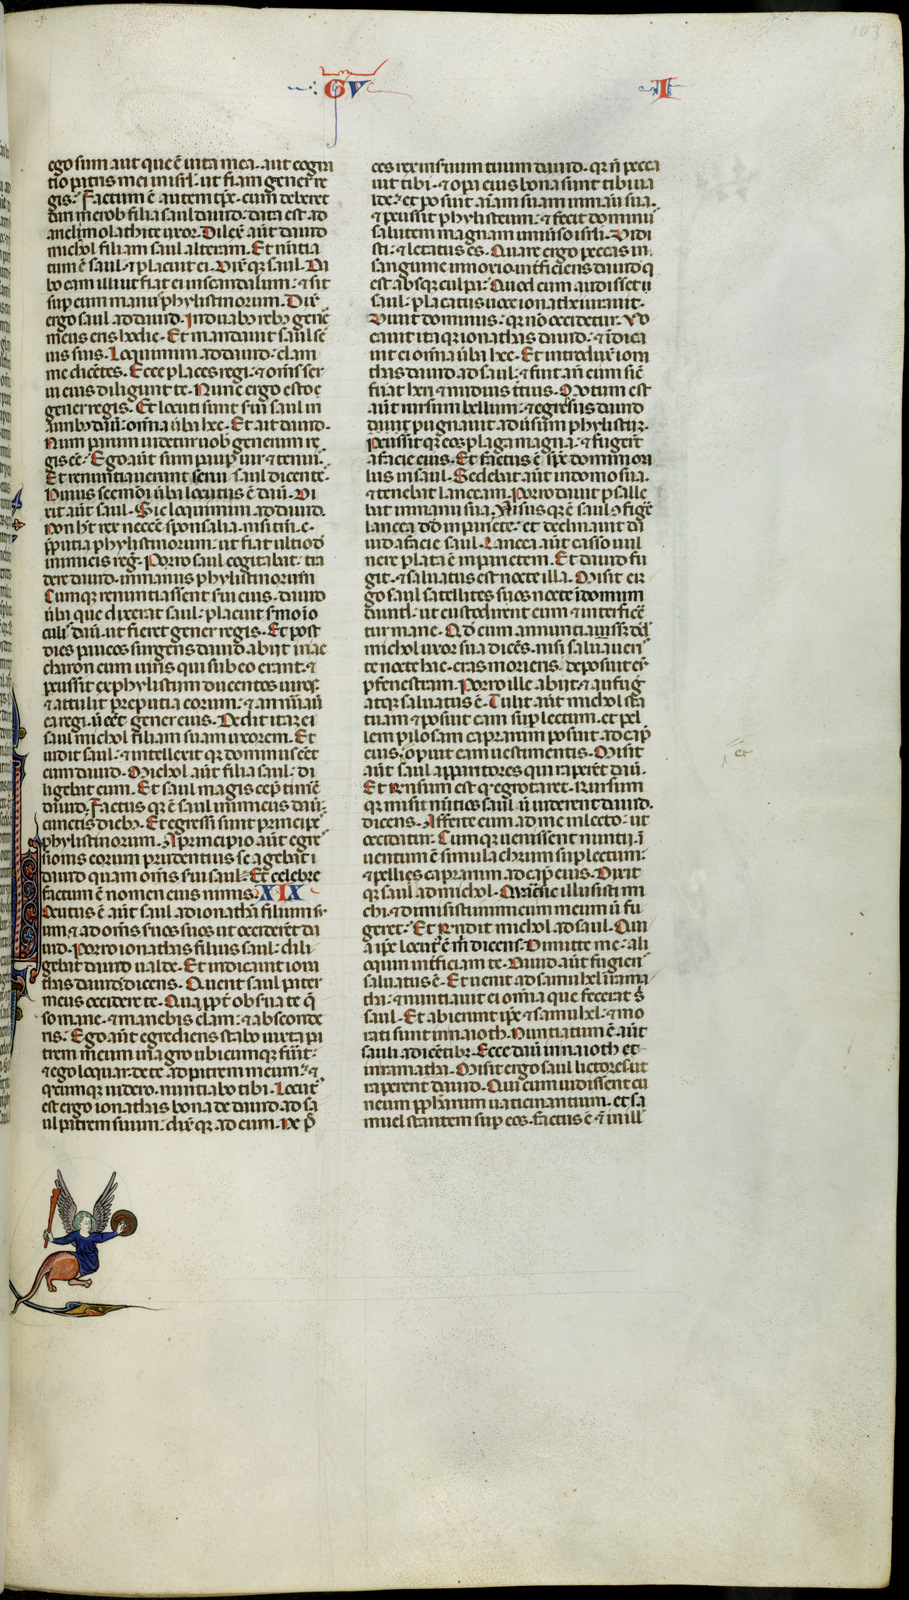 103
GV I
ego sum aut que ē uita mea. aut cogna
tio patris mei in isrl. ut fiam gener re
gis. Factum ē autem tp̄r. cum deberet
dari merob filia saul dauid. data est ad
rieli molathite uxor. Dilex̄ aūt dauid
michol filiam saul alteram. Et nūtia
tum ē saul. ⁊ placuit ei. Dix̄ q̄ saul. Da
bo eam illi ut fiat ei in scandalum. ⁊ sit
sup eum manus phylistinorum. Dix̄
ergo saul ad dauid. In duabꝰ rebꝰ gener
meus eris hodie. Et mandauit saul ser
uis suis. Loquimini ad dauid. clam
me dicētes. Ecce places regi. ⁊ om̄s ser
ui eius diligunt te. Nunc ergo esto
gener regis. Et locuti sunt s̄ui saul in
auribꝰ dauid. omīa ūba hec. Et ait dauid.
Num parum uidetur uob generum re
gis eē. Ego aūt sum paup uir ⁊ tenuis.
Et renuntiauerunt serui saul dicente.
Huius scemodi ūba locutus ē dauid. Di
xit aūt saul. Sic loquimini ad dauid.
Non h̄t rex necesse sponsalia. nisi tm̄. c.
preputia phylistinorum. ut fiat ultio de
inimicis regis. Porro saul cogitabat. tra
dere dauid. in manus phylistinorum
Cumque renuntiassent s̄ui eius. dauid
ūba que dixerat saul. placuit s̄mo in o
culis dauid. ut fieret gener regis. Et post
dies paucos surgens dauid abiit in ac
charon cum uiris qui sub eo erant. ⁊
peussit ex phylistiim ducentos uiros.
⁊ attulit preputia eorum. ⁊ annūau
ea regi. ū eēt gener eius. Dedit itaq̄ ei
saul michol filiam suam uxorem. Et
uidit saul. ⁊ intellexit q̄ dominus eēt
cum dauid. Michol aūt filia saul. di
ligebat eum. Et saul magis cep̄ timē
dauid. Factus q̄ ē saul inimicus dauid
cunctis diebꝰ. Et egressi sunt principes
phylistinorum. A principio aūt egre
ssionis eorum prudentius se agebat
dauid quam om̄s s̄ui saul. Et celebre
factum ē nomen eius nimis. XIX
Locutus ē aūt saul ad ionathā filium su
um. ⁊ ad om̄s s̄uos suos ut occiderent da
uid. Porro ionathas filius saul. dili
gebat dauid ualde. Et indicauit iona
thas dauid dicens. Querit saul pater
meus occidere te. Qua ppt̄ obserua te q̄
so mane. ⁊ manebis clam. ⁊ absconde
ris. Ego aūt egrediens stabo iuxta pa
trem meum in agro ubicumq̄ fūit.
⁊ ego loquar de te ad patrem meum. ⁊
q̄cumq̄ uidero. nuntiabo tibi. Locutꝰ
est ergo ionathas bona de dauid ad sa
ul patrem suum. dix̄ q̄ ad eum. Ne p̄
ces rex in s̄uum tuum dauid. q̄ n̄ pecca
uit tibi. ⁊ opa eius bona sunt tibi ua
lde. ⁊ posuit aīam suam in manu sua.
⁊ peussit phylisteum. ⁊ fecit dominus
salutem magnam uniūso isrli. Vidi
sti. ⁊ letatus es. Quare ergo peccas in
sanguine innoxio. interficiens dauid q̄
est absq̄ culpa. Quod cum audisset
saul. placatus uoce ionathe iurauit.
Viuit dominus. q̄ nō occidetur. Vo
cauit itaq̄ ionathas dauid. ⁊ indica
uit ei omīa ūba hec. Et introdux̄ iona
thas dauid ad saul. ⁊ fuit an̄ eum sic
fuerat heri ⁊ nudius tertius. Motum est
aūt rursum bellum. ⁊ egressus dauid
dauit pugnauit aduersum phylistiim.
Peussit q̄ eos plaga magna. ⁊ fugerūt
a facie eius. Et factus ē sp̄c domini ma
lus in saul. Sedebat aūt in domo sua.
⁊ tenebat lanceam. Porro dauid psalle
bat in manu sua. Nisus q̄ ē saul figē
lancea dd in pariete. ⁊ declinauit da
uid a facie saul. Lancea aūt casso uul
nere plata ē in parietem. Et dauid fu
git. ⁊ saluatus est nocte illa. Misit er
go saul satellites suos nocte in domum
dauid. ut custodirent eum ⁊ interfice
tur mane. Qd cum annuntiasset dauid
michol uxor sua dicens. nisi saluaueris
te nocte hac. cras morieris. deposuit eū
p fenestram. Porro ille abiit. ⁊ aufug
atq̄ saluatus ē. Tulit aūt michol sta
tuam ⁊ posuit eam sup lectum. ⁊ pel
lem pilosam caprarum posuit ad cap̄
eius. ⁊ opuit eam uestimentis. Misit
aūt saul apparitores qui raperēt dauid.
Et r̄nsum est q̄ egrotaret. Rursum
q̄ misit nūtios saul ū uiderent dauid.
dicens. Afferte eum ad me in lecto. ut
occidatur. Cumq̄ uenissent nuntii. ī
uentum ē simulachrum sup lectum.
⁊ pelles caprarum ad cap̄ eius. Dixit
q̄ saul ad michol. Quare sic illusisti mi
chi. ⁊ dimisisti inimicum meum ū fu
geret. Et r̄ndit michol ad saul. Qui
a ip̄e locutꝰ ē m̄ dicens. Dimitte me. ali
oquin int̄ficiam te. Dauid aūt fugiens
saluatus ē. Et uenit ad samuhel ī rama
tha. ⁊ nuntiauit ei omīa que fecerat s̄
saul. Et abierunt ip̄e ⁊ samuhel. ⁊ mo
rati sunt in naioth. Nuntiatum ē aūt
sauli a dicētibꝰ. Ecce dauid in naioth
in ramatha. Misit ergo saul lictores ut
raperent dauid. Qui cum uidissent cu
neum pphetarum uaticinantium. et sa
muel stantem sup eos. factus ē ⁊ in ill
et